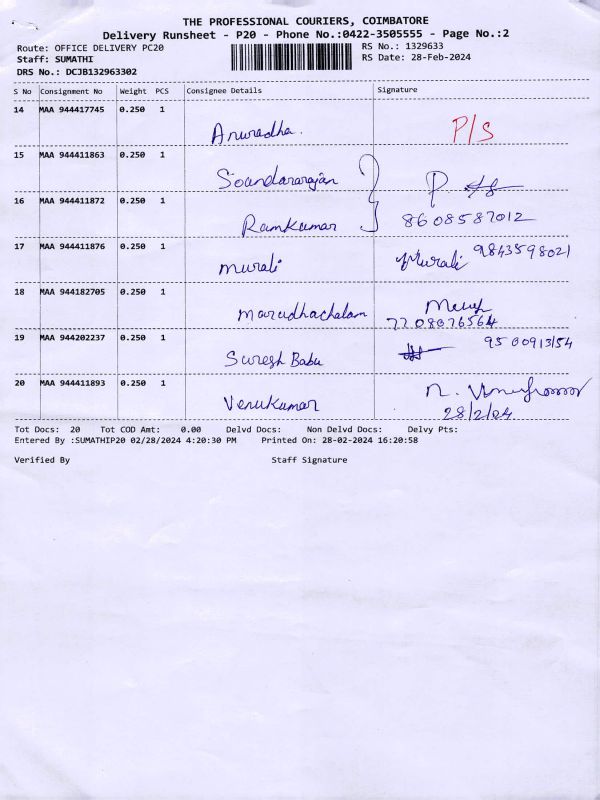 THE PROFESSIONAL COURIERS, COIMBATORE
Delivery Runsheet - P20 - Phone No.:0422-3505555 - Page No.:2
Route: OFFICE DELIVERY PC20 RS No.: 1329633
Staff: SUMATHI RS Date: 28-Feb-2024
DRS No.: DCJB132963302
S No Consignment No Weight PCS Consignee Details Signature
14 MAA 944417745 0.250 1 Anuradha. P/S
15 MAA 944411863 0.250 1 Soandararajan P.
16 MAA 944411872 0.250 1 Ramkumar 8608587012
17 MAA 944411876 0.250 1 murali Murali 9843598021
18 MAA 944182705 0.250 1 marudhachalam
7708076564
19 MAA 944202237 0.250 1 Suresh Babu 9500913154
20 MAA 944411893 0.250 1 Venukumar
28/2/24.
Tot Docs: 20 Tot COD Amt: 0.00 Delvd Docs: Non Delvd Docs: Delvy Pts:
Entered By :SUMATHIP20 02/28/2024 4:20:30 PM Printed On: 28-02-2024 16:20:58
Verified By Staff Signature